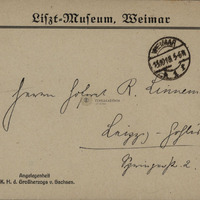 Liszt-Museum, Weimar
WEIMAR
Herrn Hofrat R. Linnemann
Leipzig-Gohlis
Springerstr. 2.
Angelegenheit
K. H. d. Großherzogs v. Sachsen.